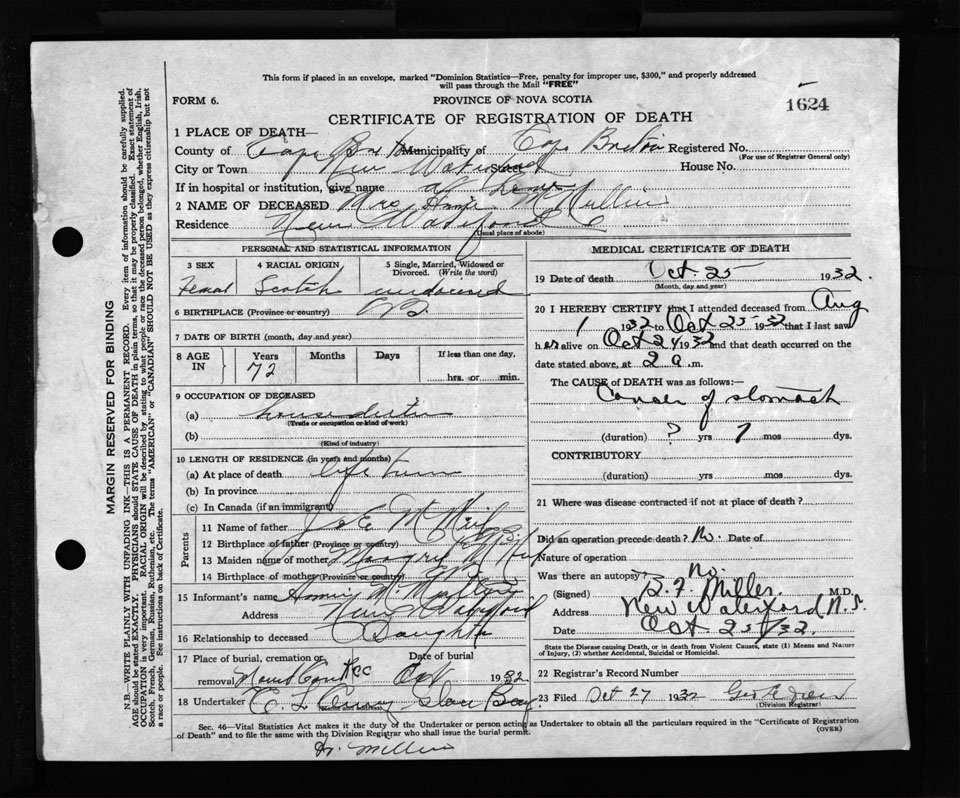 This form if placed in an envelope, marked "Dominion Statistics—Free, penalty for improper use, $300," and properly addressed
will pass through the Mail "FREE"
FORM 6.
PROVINCE OF NOVA SCOTIA
1624
CERTIFICATE OF REGISTRATION OF DEATH
1 PLACE OF DEATH—
County of Cape Municipality of Cape Breton Registered No.
(For use of Registrar General only)
City or Town New Waterford Street House No.
If in hospital or institution, give name at home
2 NAME OF DECEASED Mrs
Residence New Waterford
(Usual place of abode)
PERSONAL AND STATISTICAL INFORMATION
3 SEX 4 RACIAL ORIGIN 5 Single, Married, Widowed or Divorced. (Write the word)
Scotch
6 BIRTHPLACE (Province or country)
7 DATE OF BIRTH (month, day and year)
8 AGE IN Years Months Days If less than one day,
72
hrs. or min.
9 OCCUPATION OF DECEASED
(a)
(Trade or occupation or kind of work)
(b)
(Kind of industry)
10 LENGTH OF RESIDENCE (in years and months)
(a) At place of death life
(b) In province
(c) In Canada (if an immigrant)
Parents
11 Name of father
12 Birthplace of father (Province or country)
13 Maiden name of mother
14 Birthplace of mother (Province or country)
15 Informant's name
Address New Waterford
16 Relationship to deceased Daughter
17 Place of burial, cremation or removal Date of burial
Oct 1932
18 Undertaker Glace Bay
MEDICAL CERTIFICATE OF DEATH
19 Date of death Oct 25 1932.
(Month, day and year)
20 I HEREBY CERTIFY that I attended deceased from Aug
1 1932 to Oct 25 1932 that I last saw
her alive on Oct 24 1932 and that death occurred on the
date stated above, at 2 a.m.
The CAUSE of DEATH was as follows:
Cancer of stomach
(duration) ? yrs mos dys.
CONTRIBUTORY
(duration) yrs mos dys.
21 Where was disease contracted if not at place of death?
Did an operation precede death? No. Date of
Nature of operation
Was there an autopsy? No.
(Signed) Miller. M.D.
Address New Waterford N.S.
Date Oct. 25/32.
State the Disease causing Death, or in death from Violent Causes, state (1) Means and Nature
of Injury, (2) whether Accidental, Suicidal or Homicidal.
22 Registrar's Record Number
23 Filed Oct 27 1932
(Division Registrar)
Sec. 46—Vital Statistics Act makes it the duty of the Undertaker or person acting as Undertaker to obtain all the particulars required in the "Certificate of Registration
of Death" and to file the same with the Division Registrar who shall issue the burial permit.
(OVER)
MARGIN RESERVED FOR BINDING
N.B.—WRITE PLAINLY WITH UNFADING INK—THIS IS A PERMANENT RECORD. Every item of information should be carefully supplied.
AGE should be stated EXACTLY. PHYSICIANS should STATE CAUSE OF DEATH in plain terms, so that it may be properly classified. Exact statement of
OCCUPATION is very important. RACIAL ORIGIN will be described by stating to what people or race the deceased person belonged, whether English, Irish,
Scotch, French, German, Russian, Ruthenian, etc. The terms "AMERICAN" or "CANADIAN" SHOULD NOT BE USED as they express citizenship but not
a race or people. See instructions on back of Certificate.